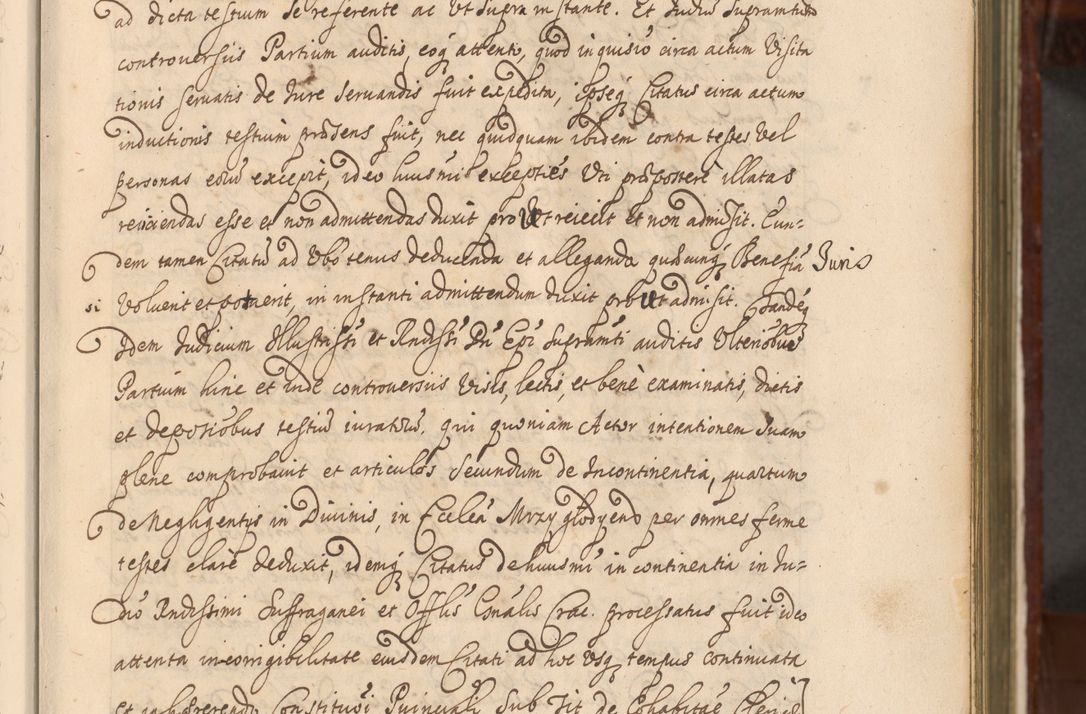 ad dicta testium se referente ac Ut supra instante. Et Iudiũ supramtum
controversiis Partium auditis, eoq́ attento, quod inquisió circa actum Visita
tionis servatis de Iure servandis fuit expedita, ipseq́ Citatus circa actum
inductionis testium præsens fuit, nec quidquam ibidem contra testes Vel
personas eorũ excepit, ideo huiusmi exceptiés Uti præpostere illatas
reiiciendas esse et non admittendas duxit pro Ut reiecit et non admisit. Eun-
dem tamen Citatũ ad Ubotenus deducenda et alleganda quæcunq́ Beneficia Iuris
si Voluerit et potuerit, in instanti admittendum duxit pro Ut admisit. Tandẽ
Idem Iudicium Illustrissi et Rndissi Dñi Epi supramti auditis Ulterioribus
Partium hinc et inde controversiis Visis, lectis, et benè examinatis, dictis
et depositióbus testiũ iuratorũ, qui quoniam Actor intentionem suam
plene comprobavit et articulos secundum de Incontinentia, quartum
de Negligentiis in Divinis, in Ecclea Mrzyglodyen per omnes ferme
testes clarè deduxit, idemq́ Citatus de huiusmi incontinentia in Iu-
dió Rndissimi Suffraganei et Offlis Gnalis Crac. processatus fuit ideo
attenta incorrigibilitate eiusdem Citati ad hoc Usq́ tempus continuata
et inhærendo Constituói Puinciali sub Tit de Cohabitae Cleric